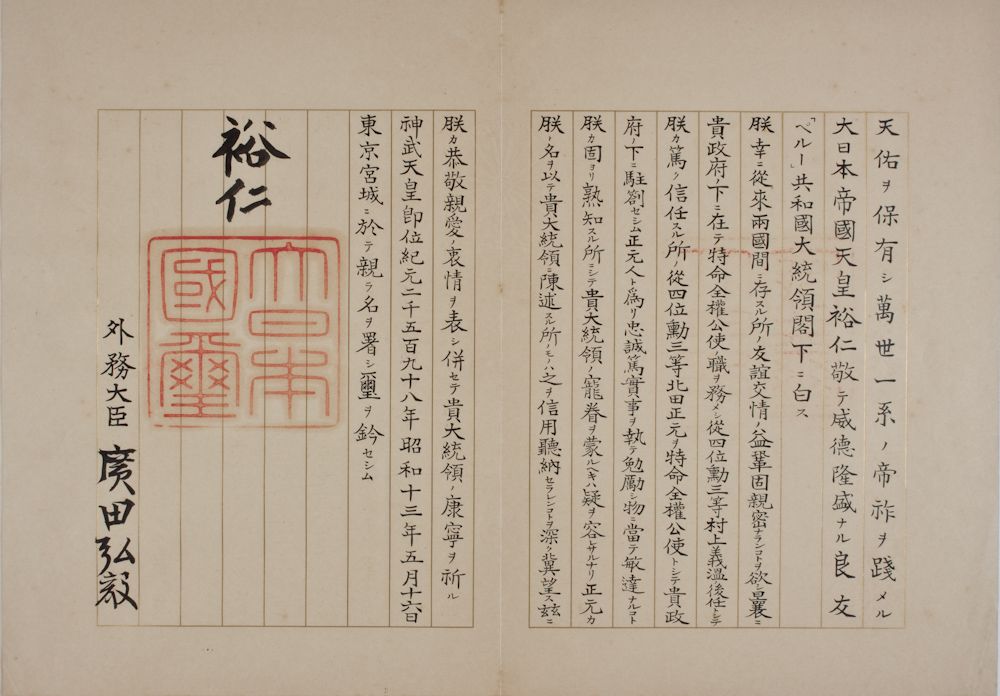 天佑ヲ保有シ萬世一系ノ帝祚ヲ踐メル
大日本帝國天皇裕仁敬テ威德隆盛ナル良友
「ペルー」共和國大統領閣下ニ白ス
朕幸ニ從來兩國間ニ存スル所ノ友誼交情ノ益鞏固親密ナランコトヲ欲シ曩ニ
貴政府ノ下ニ在テ特命全權公使ノ職ヲ務メシ從四位勳三等村上義溫後任トシテ
朕カ篤ク信任スル所ノ從四位勳三等北田正元ヲ特命全權公使トシテ貴政
府ノ下ニ駐劄セシム正元人ト爲リ忠誠篤實事ヲ執テ勉勵シ物ニ當テ敏達ナルコト
朕カ固ヨリ熟知スル所ニシテ貴大統領ノ寵眷ヲ蒙ルヘキハ疑ヲ容レサルナリ正元カ
朕ノ名ヲ以テ貴大統領ニ陳述スル所ノモノハ之ヲ信用聽納セラレンコトヲ深ク冀望ス玆ニ
朕カ恭敬親愛ノ衷情ヲ表シ併セテ貴大統領ノ康寧ヲ祈ル
神武天皇卽位紀元二千五百九十八年昭和十三年五月十六日
東京宮城ニ於テ親ラ名ヲ署シ璽ヲ鈐セシム
裕仁
大日本
國璽
外務大臣 廣田弘毅